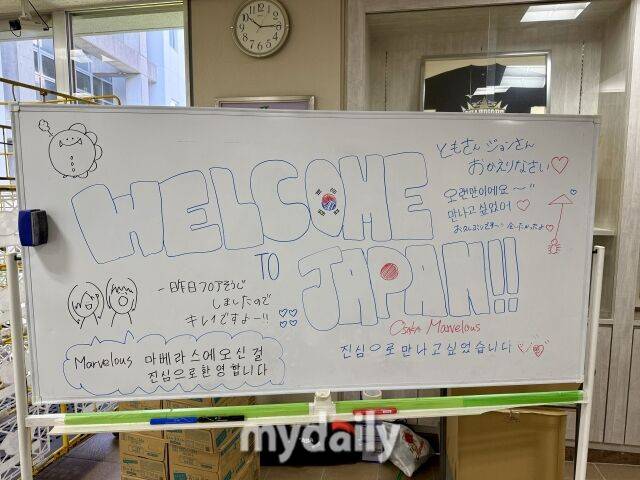 WELCOME
TO
JAPAN!!
ともさん ジョンさん
おかえりなさい♡
오랜만이에요~"
만나고 싶었어 ♡
一昨日フロアそうじ
しましたので
キレイですよー!!
Marvelous 마베라스에 오신 걸
진심으로 환영합니다
Osaka Marvelous
진심으로 만나고 싶었습니다
mydaily